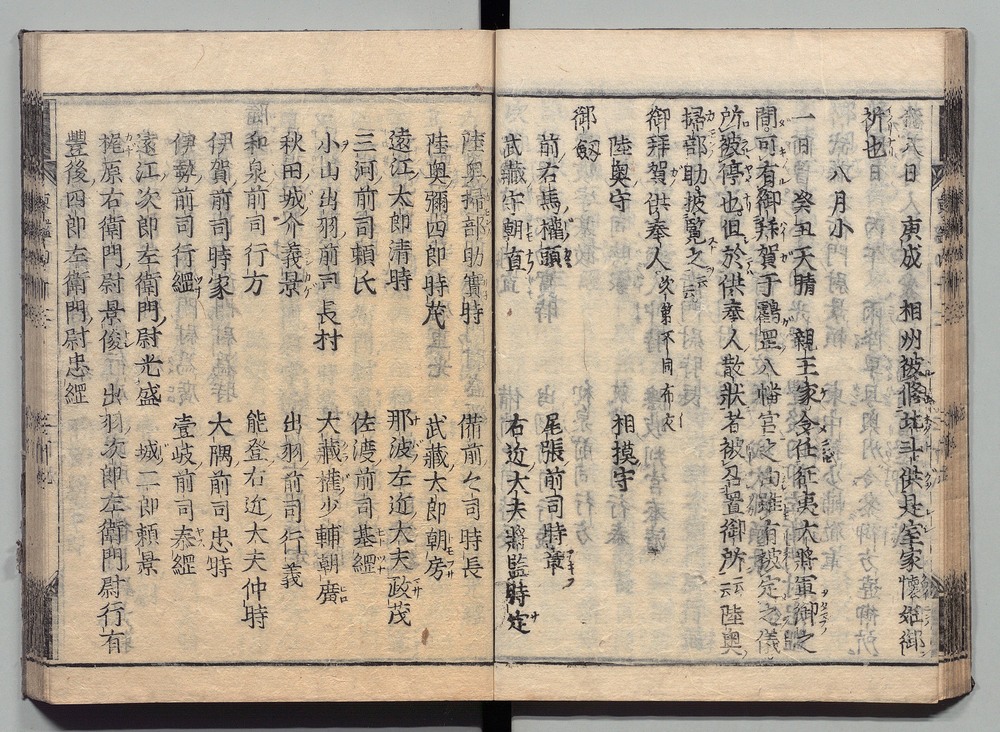 八日 東成 相州被修北斗供是室家懐姙御
祈也
八月小
一日 癸丑天晴 親王家令任征夷大將軍御之
間可有御拜賀于鶴罡八幡宮之由雖有被定之儀
所被停也但於供奉人散狀者被召置御所云云陸奥
掃部助披覧之云云
御拜賀供奉人次第不同布衣
陸奥守 相摸守
御劔
前右馬權頭 尾張前司時章
武藏守朝直 右近大夫將監時定
陸奥掃部助實時 備前々司時長
陸奥彌四郎時茂 武藏太郎朝房
遠江太郎清時 那波左近大夫政茂
三河前司頼氏 佐渡前司基綱
小山出羽前司長村 大藏權少輔朝廣
秋田城介義景 出羽前司行義
和泉前司行方 能登右近大夫仲時
伊賀前司時家 大隅前司忠時
伊勢前司行綱 壹岐前司泰綱
遠江次郎左衛門尉光盛 城二郎頼景
梶原右衛門尉景俊 出羽次郎左衛門尉行有
豐後四郎左衛門尉忠綱